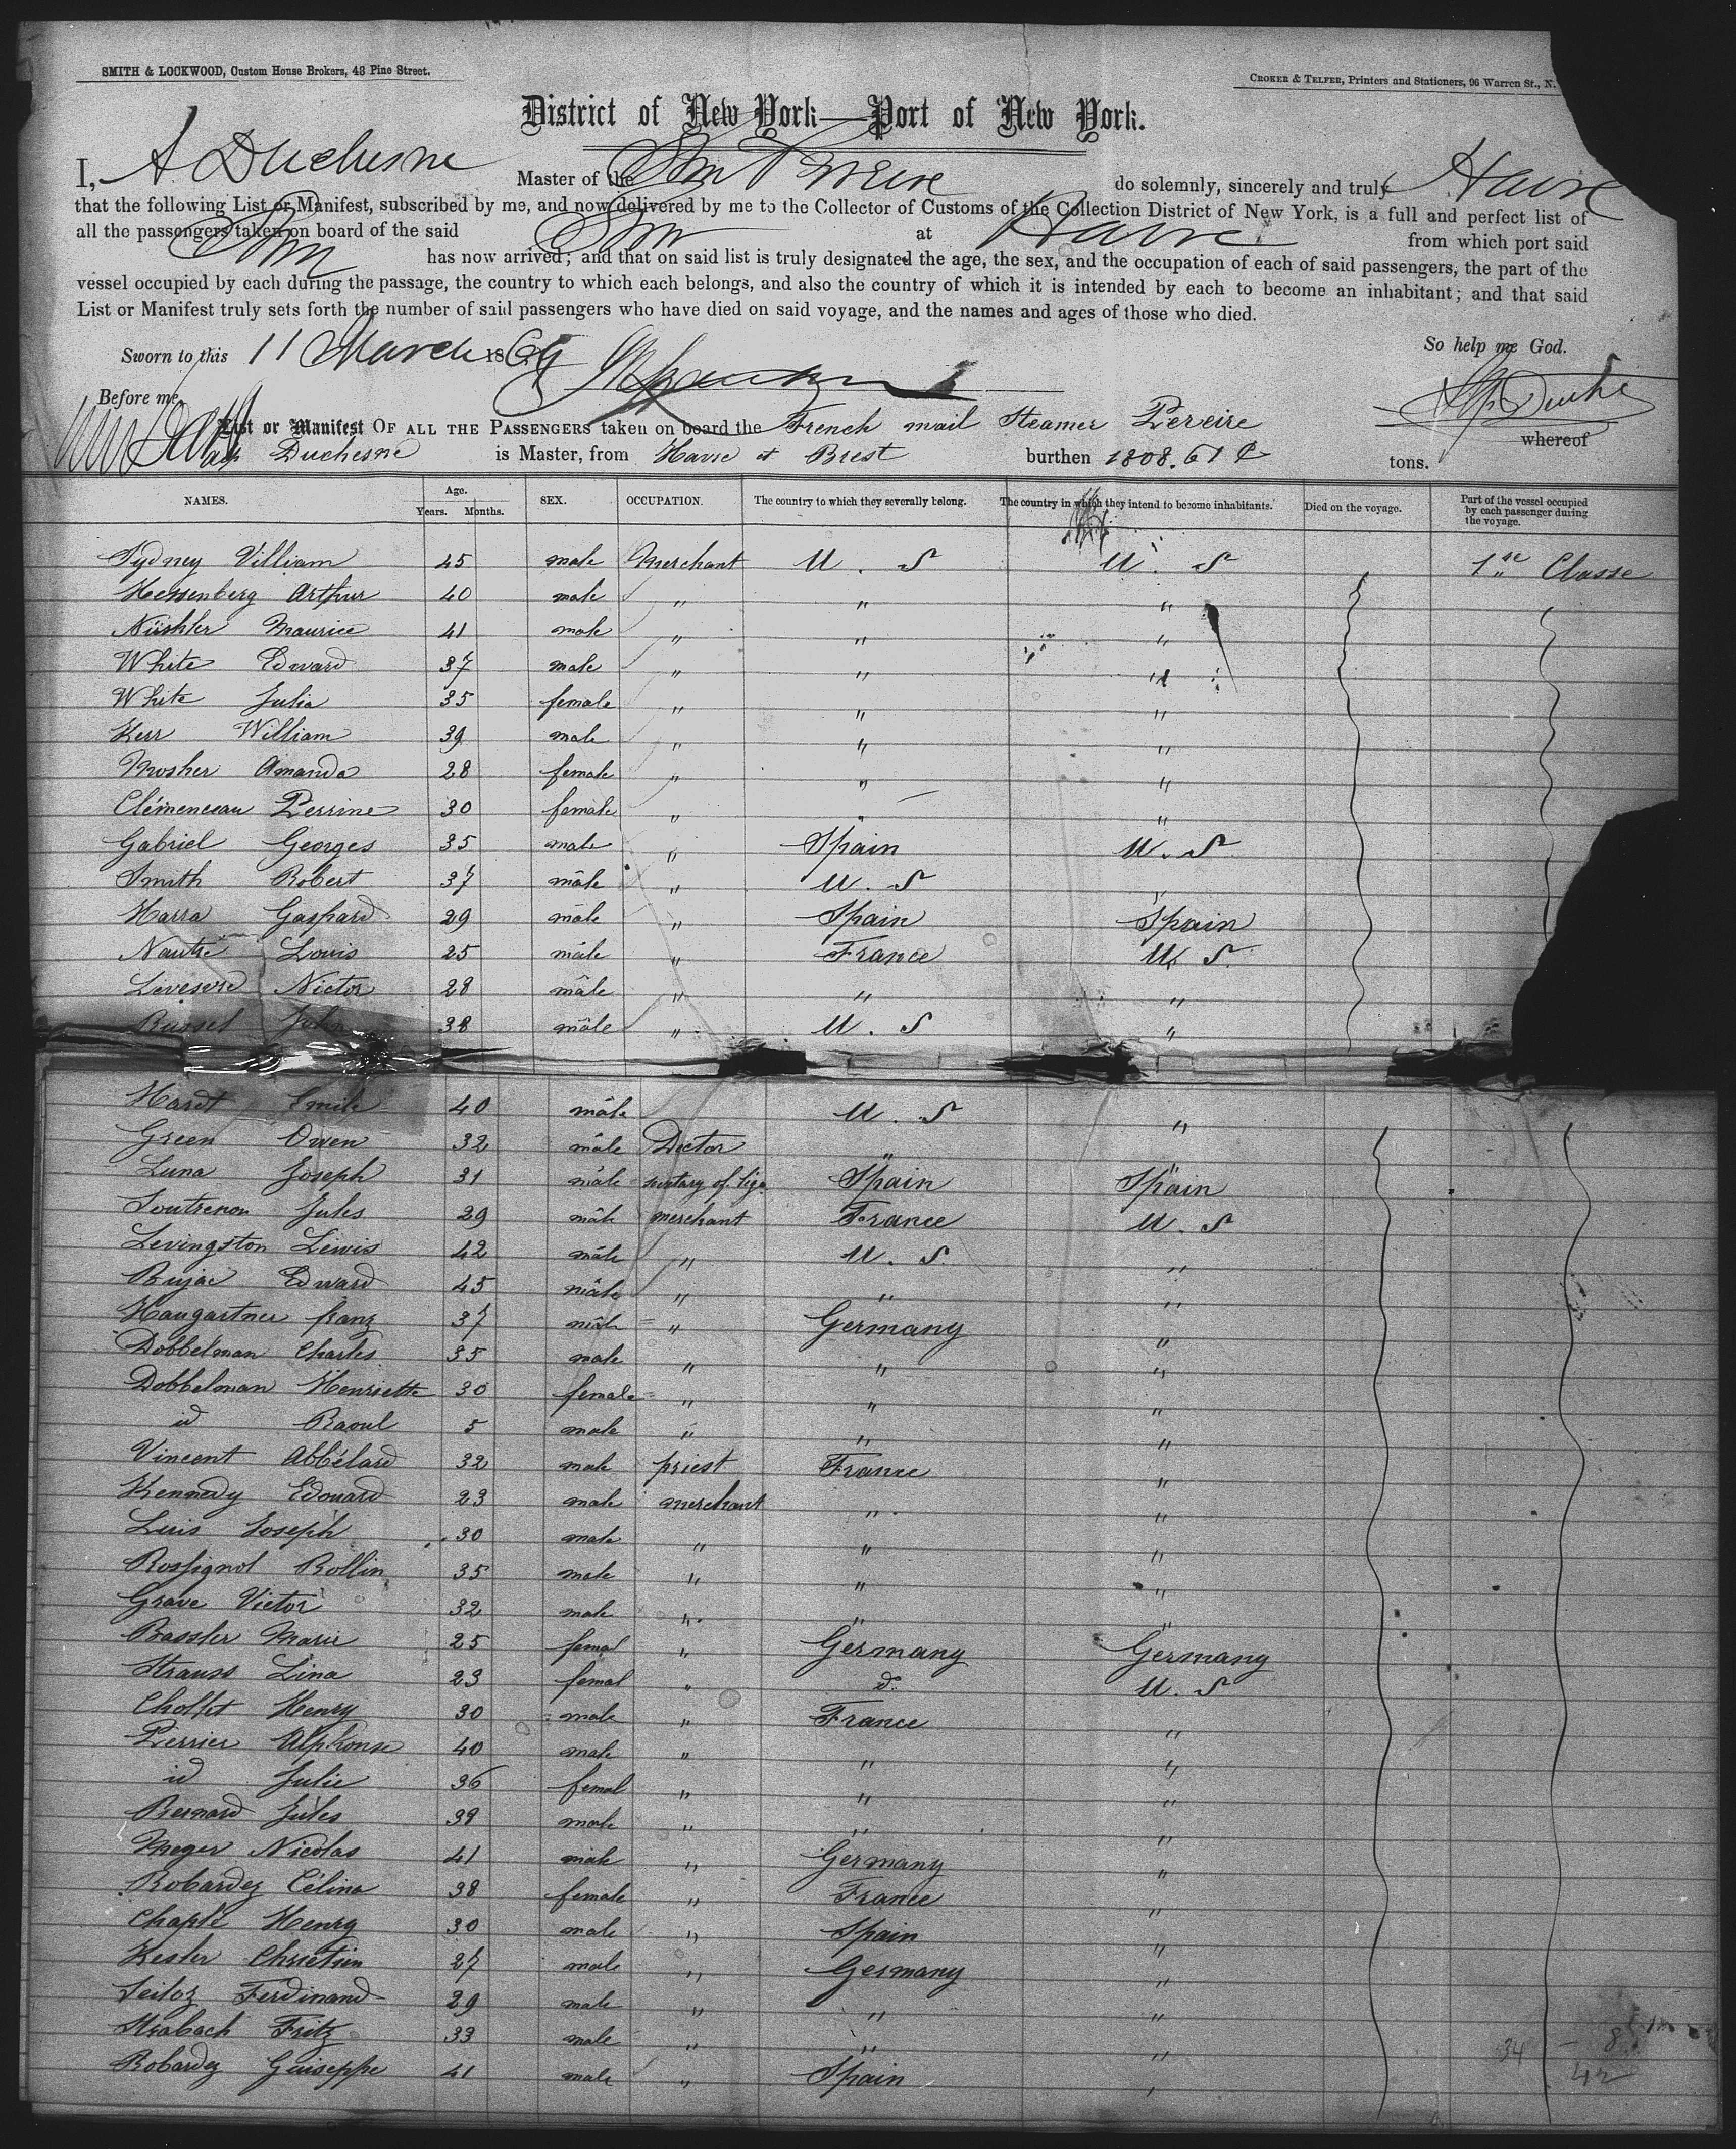 SMITH & LOCKWOOD, Custom House Brokers, 48 Pine Street.
CROKER & TELFER, Printers and Stationers, 96 Warren St., N.
District of New York—Port of New York.
I, A Duchesne Master of the Stm Pereire do solemnly, sincerely and truly Havre
that the following List or Manifest, subscribed by me, and now delivered by me to the Collector of Customs of the Collection District of New York, is a full and perfect list of
all the passengers taken on board of the said Stm at Havre from which port said
Stm has now arrived; and that on said list is truly designated the age, the sex, and the occupation of each of said passengers, the part of the
vessel occupied by each during the passage, the country to which each belongs, and also the country of which it is intended by each to become an inhabitant; and that said
List or Manifest truly sets forth the number of said passengers who have died on said voyage, and the names and ages of those who died.
Sworn to this 11 March 1869 So help me God.
Before me,
List or Manifest OF ALL THE PASSENGERS taken on board the French mail Steamer Pereire whereof
Duchesne is Master, from Havre et Brest burthen 1808.61 tons.
NAMES. Age. Years. Months. SEX. OCCUPATION. The country to which they severally belong. The country in which they intend to become inhabitants. Died on the voyage. Part of the vessel occupied by each passenger during the voyage.
Sydney William 45 male Merchant U. S U. S 1re Classe
Hessenberg Arthur 40 male " " "
Nüshler Maurice 41 male " " "
White Edward 37 male " " "
White Julia 35 female " " "
Kerr William 39 male " " "
Mosher Amanda 28 female " " "
Clémenceau Perrine 30 female " " "
Gabriel Georges 35 male " Spain U. S
Smith Robert 37 mâle " U. S "
Harra Gaspard 29 mâle " Spain Spain
Nautré Louis 25 mâle " France U. S.
Nictor 28 mâle " " "
Russel John 38 mâle " U. S "
Hardt Emile 40 mâle U. S "
Green Owen 32 mâle Doctor " "
Luna Joseph 31 mâle secretary of Spain Spain
Soutrenon Jules 29 mâle merchant France U. S
Levingston Lewis 42 mâle " U. S. "
Bujac Edward 45 mâle " " "
Haugartner franz 37 mâle " Germany "
Dobbelman Charles 35 male " " "
Dobbelman Henriette 30 female " " "
id Raoul 5 male " " "
Vincent Abbélard 32 male priest France "
Kennedy Edouard 23 male merchant " "
Luis Joseph 30 male " " "
Rossignol Rollin 35 male " " "
Grave Victor 32 male " " "
Bassler Marie 25 femal " Germany Germany
Strauss Lina 23 femal " do. U. S
Chollet Henry 30 male " France "
Perrier Alphonse 40 male " " "
id Julie 36 femal " " "
Bernard Jules 39 male " " "
Meger Nicolas 41 male " Germany "
Robardez Célina 38 female " France "
Chaplé Henry 30 male " Spain "
Kesler Chretien 27 male " Germany "
Seiloz Ferdinand 29 male " " "
Strabach Fritz 33 male " " "
Robardez Guiseppe 41 male " Spain "
34 - 8
42